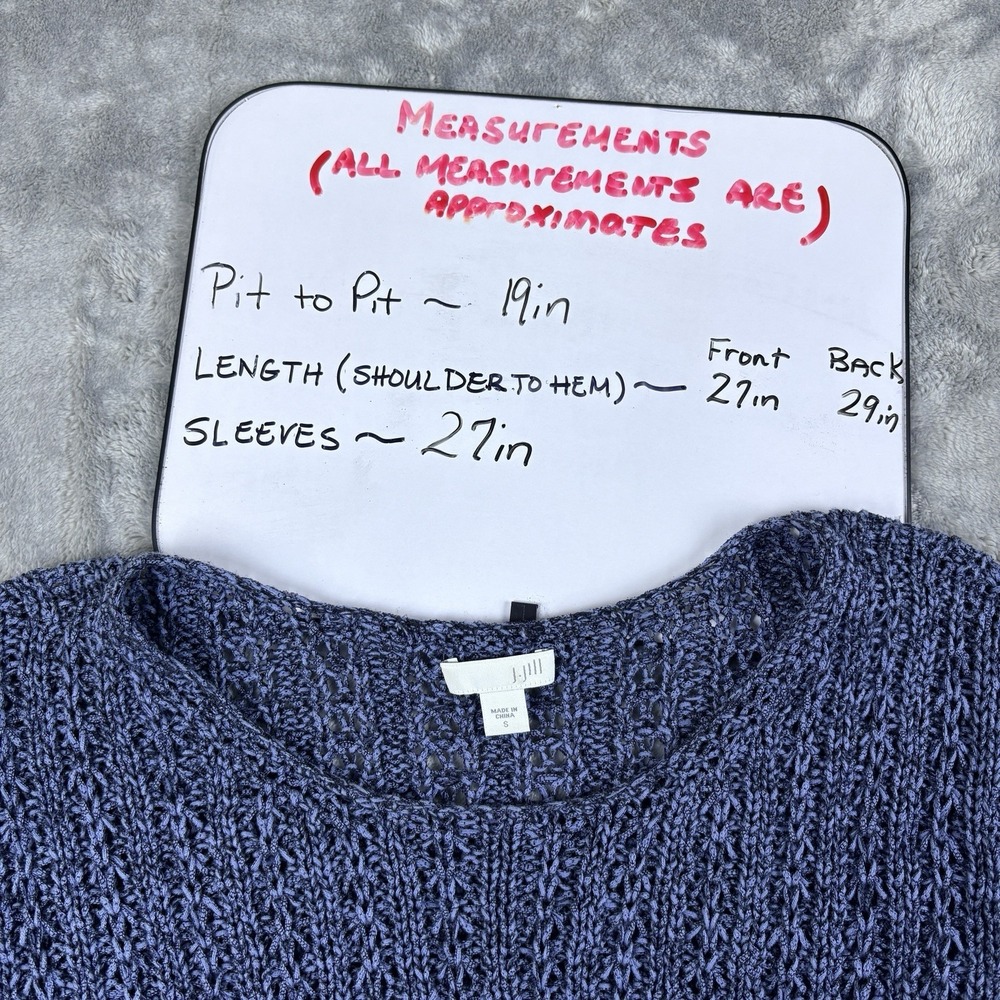 MEASUrEMENTS
(ALL MEASUrEMENTS ARE)
APPrOXIMaTES
Pit to Pit ~ 19in
Front BACK
LENGTH (SHOULDER TO HEM) ~ 27in 29in
SLEEVES ~ 27in
J.Jill
MADE IN
CHINA
S